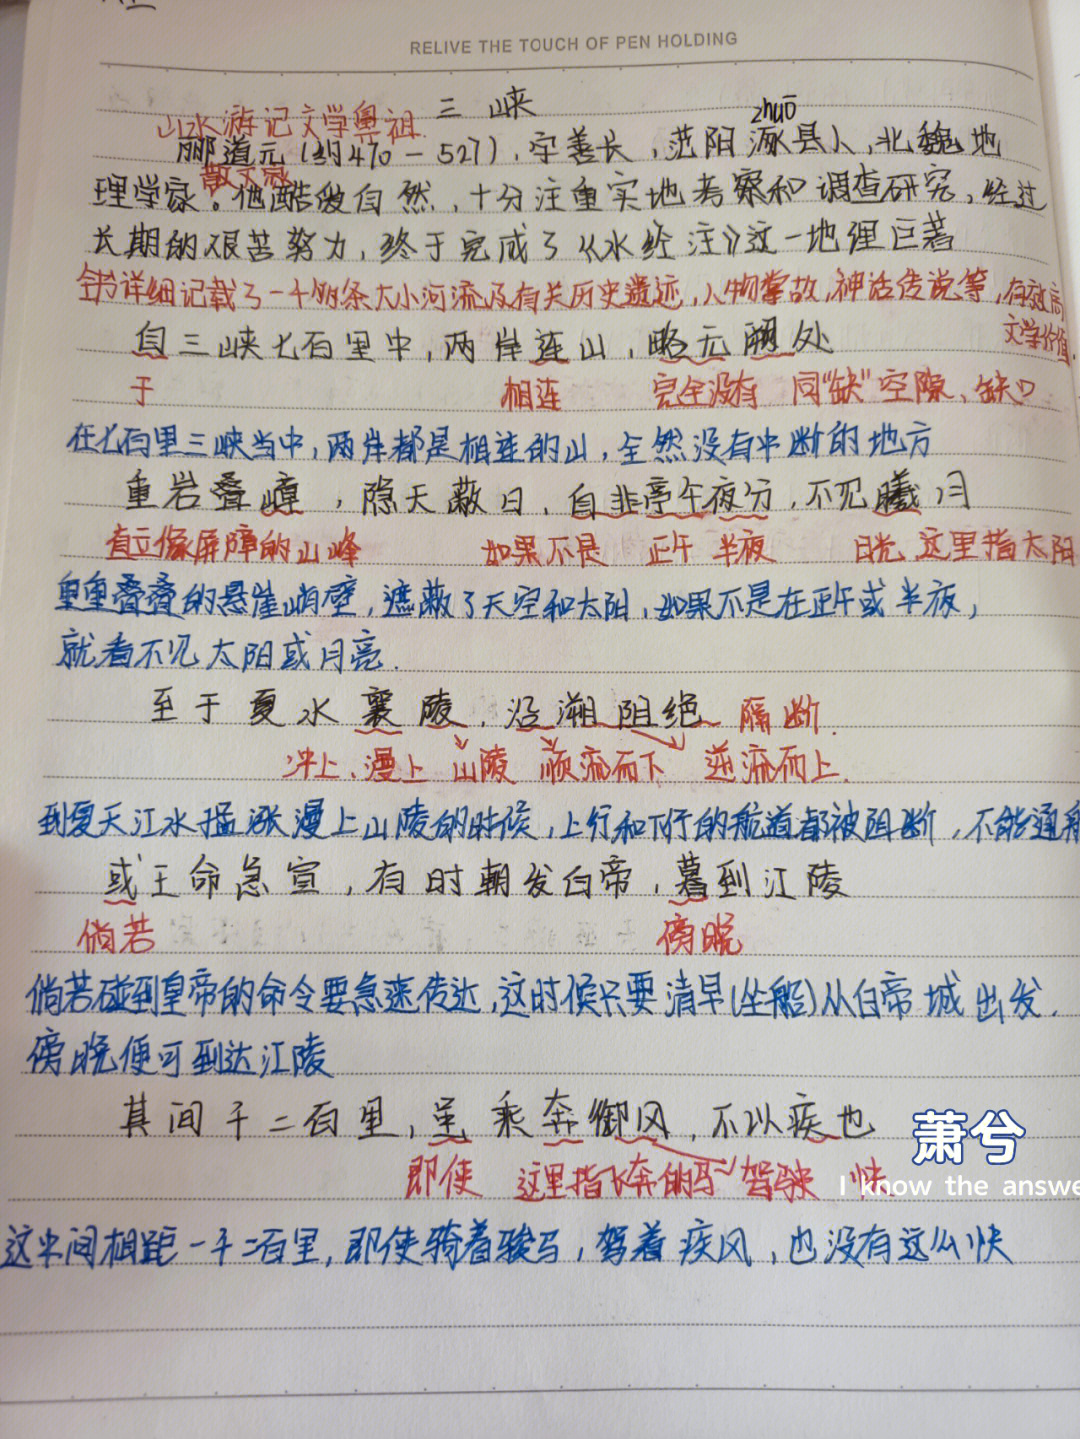 RELIVE THE TOUCH OF PEN HOLDING
三 峡
zhuō
山水游记文学鼻祖
郦道元(约470-527),字善长,范阳涿县人,北魏地
散文家
理学家。他酷爱自然,十分注重实地考察和调查研究,经过
长期的艰苦努力,终于完成了《水经注》这一地理巨著
全书详细记载了一千多条大小河流及有关历史遗迹,人物掌故,神话传说等,有效高
文学价值.
自三峡七百里中,两岸连山,略无阙处
于 相连 完全没有 同“缺”空隙、缺口
在七百里三峡当中,两岸都是相连的山,全然没有中断的地方
重岩叠嶂,隐天蔽日,自非亭午夜分,不见曦月
直立像屏障的山峰 如果不是 正午 半夜 日光,这里指太阳
重重叠叠的悬崖峭壁,遮蔽了天空和太阳,如果不是在正午或半夜,
就看不见太阳或月亮.
至于夏水襄陵,沿溯阻绝 隔断.
冲上、漫上 山陵 顺流而下 逆流而上.
到夏天江水猛涨漫上山陵的时候,上行和下行的航道都被阻断,不能通航
或王命急宣,有时朝发白帝,暮到江陵
倘若 傍晚
倘若碰到皇帝的命令要急速传达,这时候只要清早(坐船)从白帝城出发.
傍晚便可到达江陵
其间千二百里,虽乘奔御风,不以疾也
萧兮
即使 这里指飞奔的马 驾驶 快
I know the answe
这中间相距一千二百里,即使骑着骏马,驾着疾风,也没有这么快